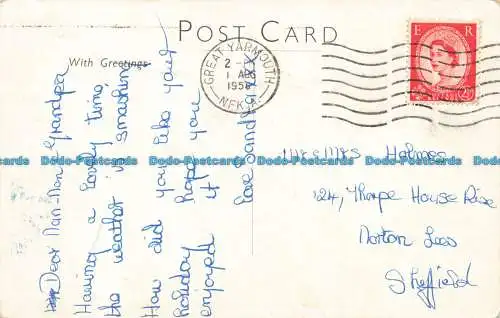 POST CARD
With Greetings
GREAT YARMOUTH
2 -
1 AUG
1958
NFK.
E R
Dear Nan-Nan Grandpa
Having a lovely time,
the weather is smashing
How did you like your
holiday hope you
enjoyed it
love Sandra X X
Mr & Mrs Holmes
124, Thorpe House Rise
Norton Lees
Sheffield
Dodo-Postcards Dodo-Postcards Dodo-Postcards Dodo-Postcards Dodo-Postcards